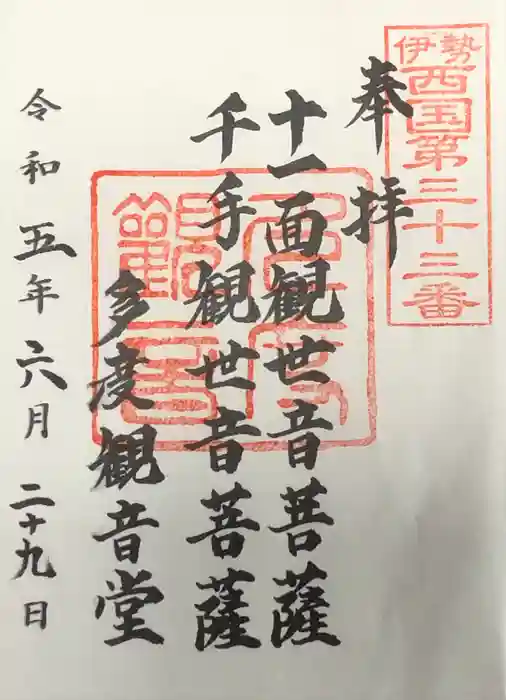 伊勢
西国第三十三番
奉拝
十一面観世音菩薩
千手観世音菩薩
多度観音堂
令和五年六月二十九日